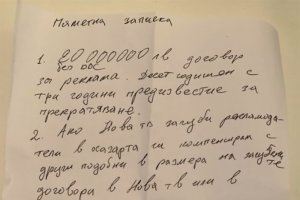 Паметна записка
1. 20 000000 лв договор
без ДДС
за реклама. Десет годишен с
три години предизвестие за
прекратяване.
2. Ако Нова тв загуби рекламода-
тели в хазарта ги компенсират с
други подобни в размера на загубени
те
договора в Нова тв или в